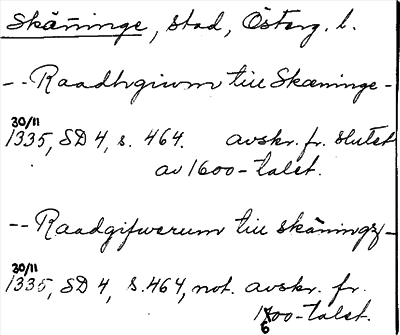 Skäninge, stad, Österg. l.
-- Raadhgiwm till Skæninge-
30/11
1335, SD 4, s. 464. avskr. fr. slutet
av 1600-talet.
-- Raadgifwerum till skäningz-
30/11
1335, SD 4, s. 464, not. avskr. fr.
1600-talet.